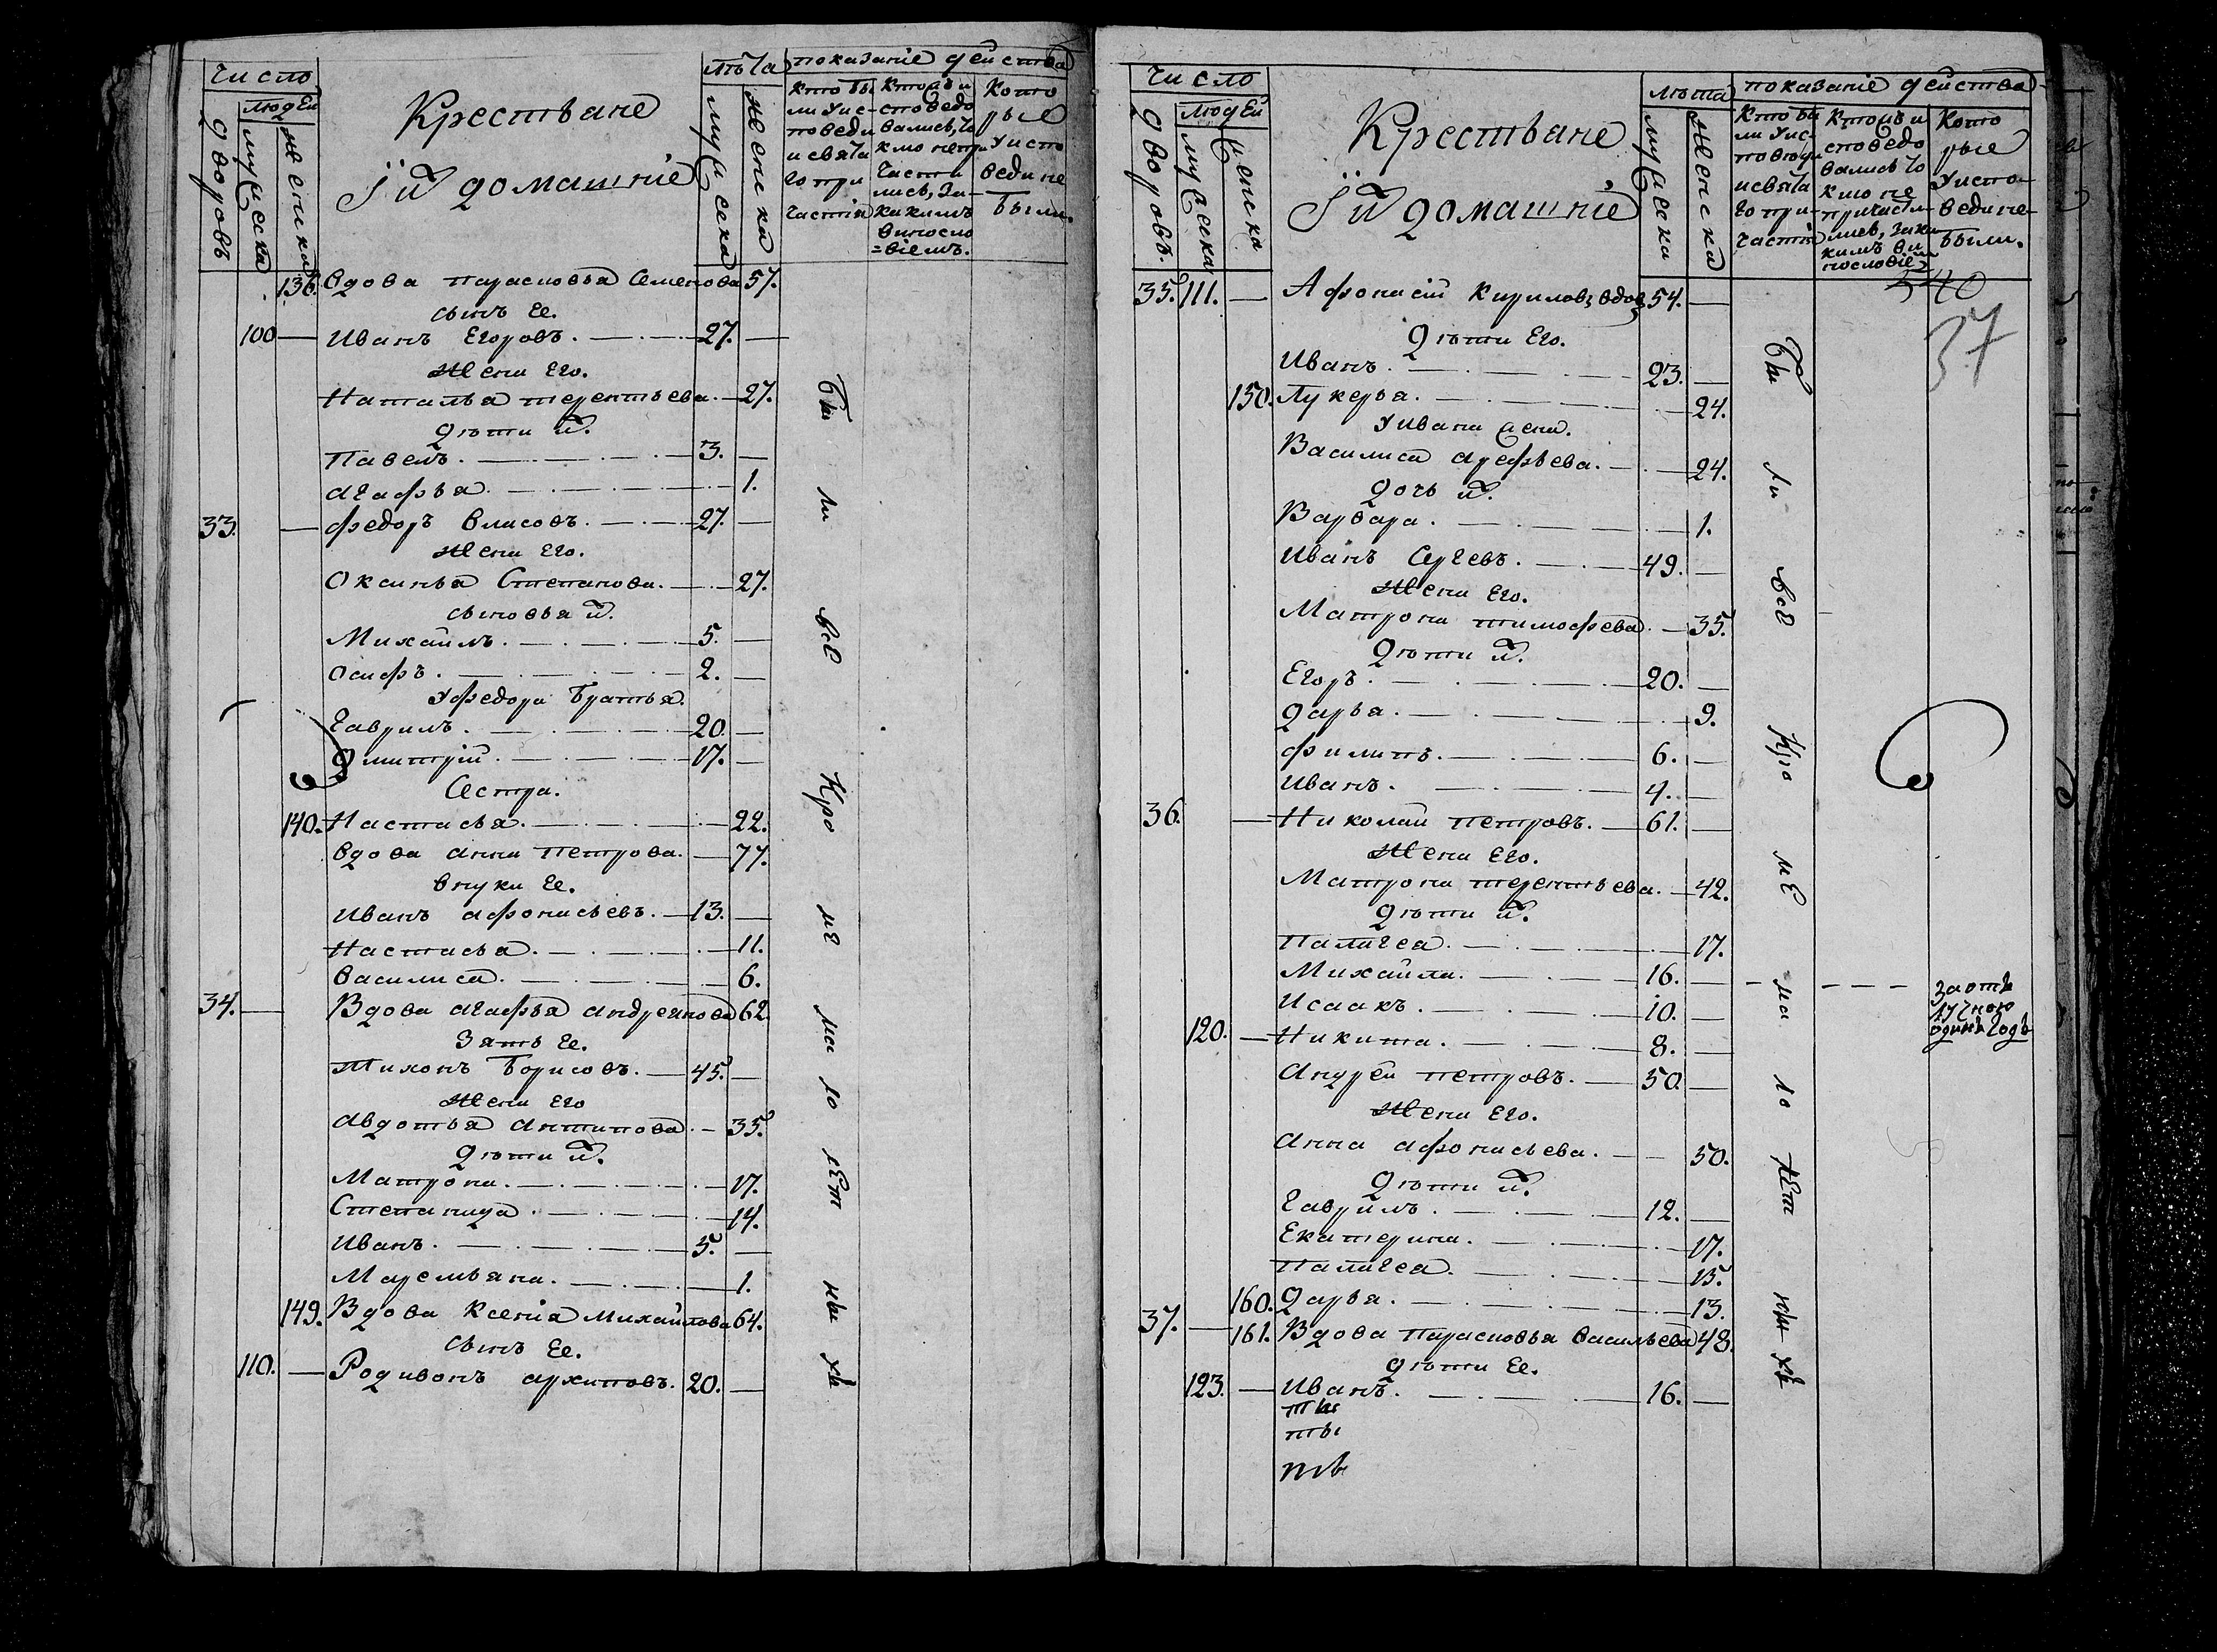 Число
Людей
Дворовъ
Мужеска
Женска
Крестьяне
Їихъ домашніе
Лѣта
Мужеска
Женска
показаніе действа
Кто бы
ли Уис
поведи
исвята
го при
частія
Кто и
споведо
вались, to
кмо непри
части
лись, За
какимъ
виносло
=віемъ.
Кото
рые
Уиспо
веди не
были.
136. вдова парасковья Семенова 57.
сынъ Ее.
100 — Иванъ Егоровъ. 27. —
Жена Его.
Наталья терентьева. — 27.
Дѣти ихъ.
Павелъ. 3. —
Агафья. 1.
33. — федоръ власовъ. 27. —
Жена Его.
Оксинья Степанова. — 27.
сыновья ихъ.
Михаилъ. 5. —
осифъ. 2. —
Уфедора братья.
Гаврилъ. 20. —
Дмитрій. 17. —
Сестра.
140. Настасья. 22.
вдова анна петрова. — 77.
внуки Ее.
Иванъ афонасьевъ. — 13. —
Настасья. 11.
Василиса. 6.
34. — Вдова агафья андреянова 62.
Зять Ее.
Тихонъ Борисовъ. — 45. —
Жена Его
авдотья антипова. — 35.
Дѣти ихъ.
Матрона. 17.
Степанида. 14.
Иванъ. 5. —
Маремьяна. 1.
149. Вдова Ксенія Михайлова 64.
сынъ Ее.
110. — Родивонъ архиповъ. 20. —
бы
ли
всЕ
Кро
мЕ
ма
ло
лЕт
ны
хъ
Число
Людей
Дворовъ.
Мужеска
Женска
Крестьяне
Їихъ домашніе
Лѣта
Мужеска
Женска
показаніе действа
Кто бы
ли Уис
поведи
исвята
го при-
частія
Кто и
споведо
вались to
кмо не
причасти
лись, Зака
кимъ ви
нословіе
Кото
рые
Уиспо-
веди не-
были.
540
37
35. 111. — Афонасій Кириловъ вдовъ 54. —
Дѣти Его.
Иванъ. 23. —
150. Лукерья. 24.
Уивана жена.
Василиса арефьева. 24.
дочь ихъ.
Варвара. 1.
Иванъ Сергеевъ. 49. —
Жена Его.
Матрона тимофева. — 35.
Дѣти ихъ.
Егоръ. 20. —
Дарья. 9.
филипъ. 6. —
Иванъ. 4. —
36. — Николай петровъ. — 61. —
Жена Его.
Матрона терентьева. — 42.
Дѣти ихъ.
Палагея. 17.
Михайла. 16. —
За отъ
лучкою
одинъ годъ
Исаакъ. 10. —
120. — Никита. 8. —
Андрей петровъ. — 50. —
Жена Его.
Анна афонасьева. — 50.
Дѣти ихъ.
Гаврилъ. 12. —
Екатерина. 17.
Палагея. 15.
160. Дарья. 13.
37. — 161. Вдова парасковья васильева 48.
дѣти Ее.
123. — Иванъ. 16. —
ты
ты
ть
бы
ли
всЕ
Кро
мЕ
ма
ло
лЕт
ны
хъ